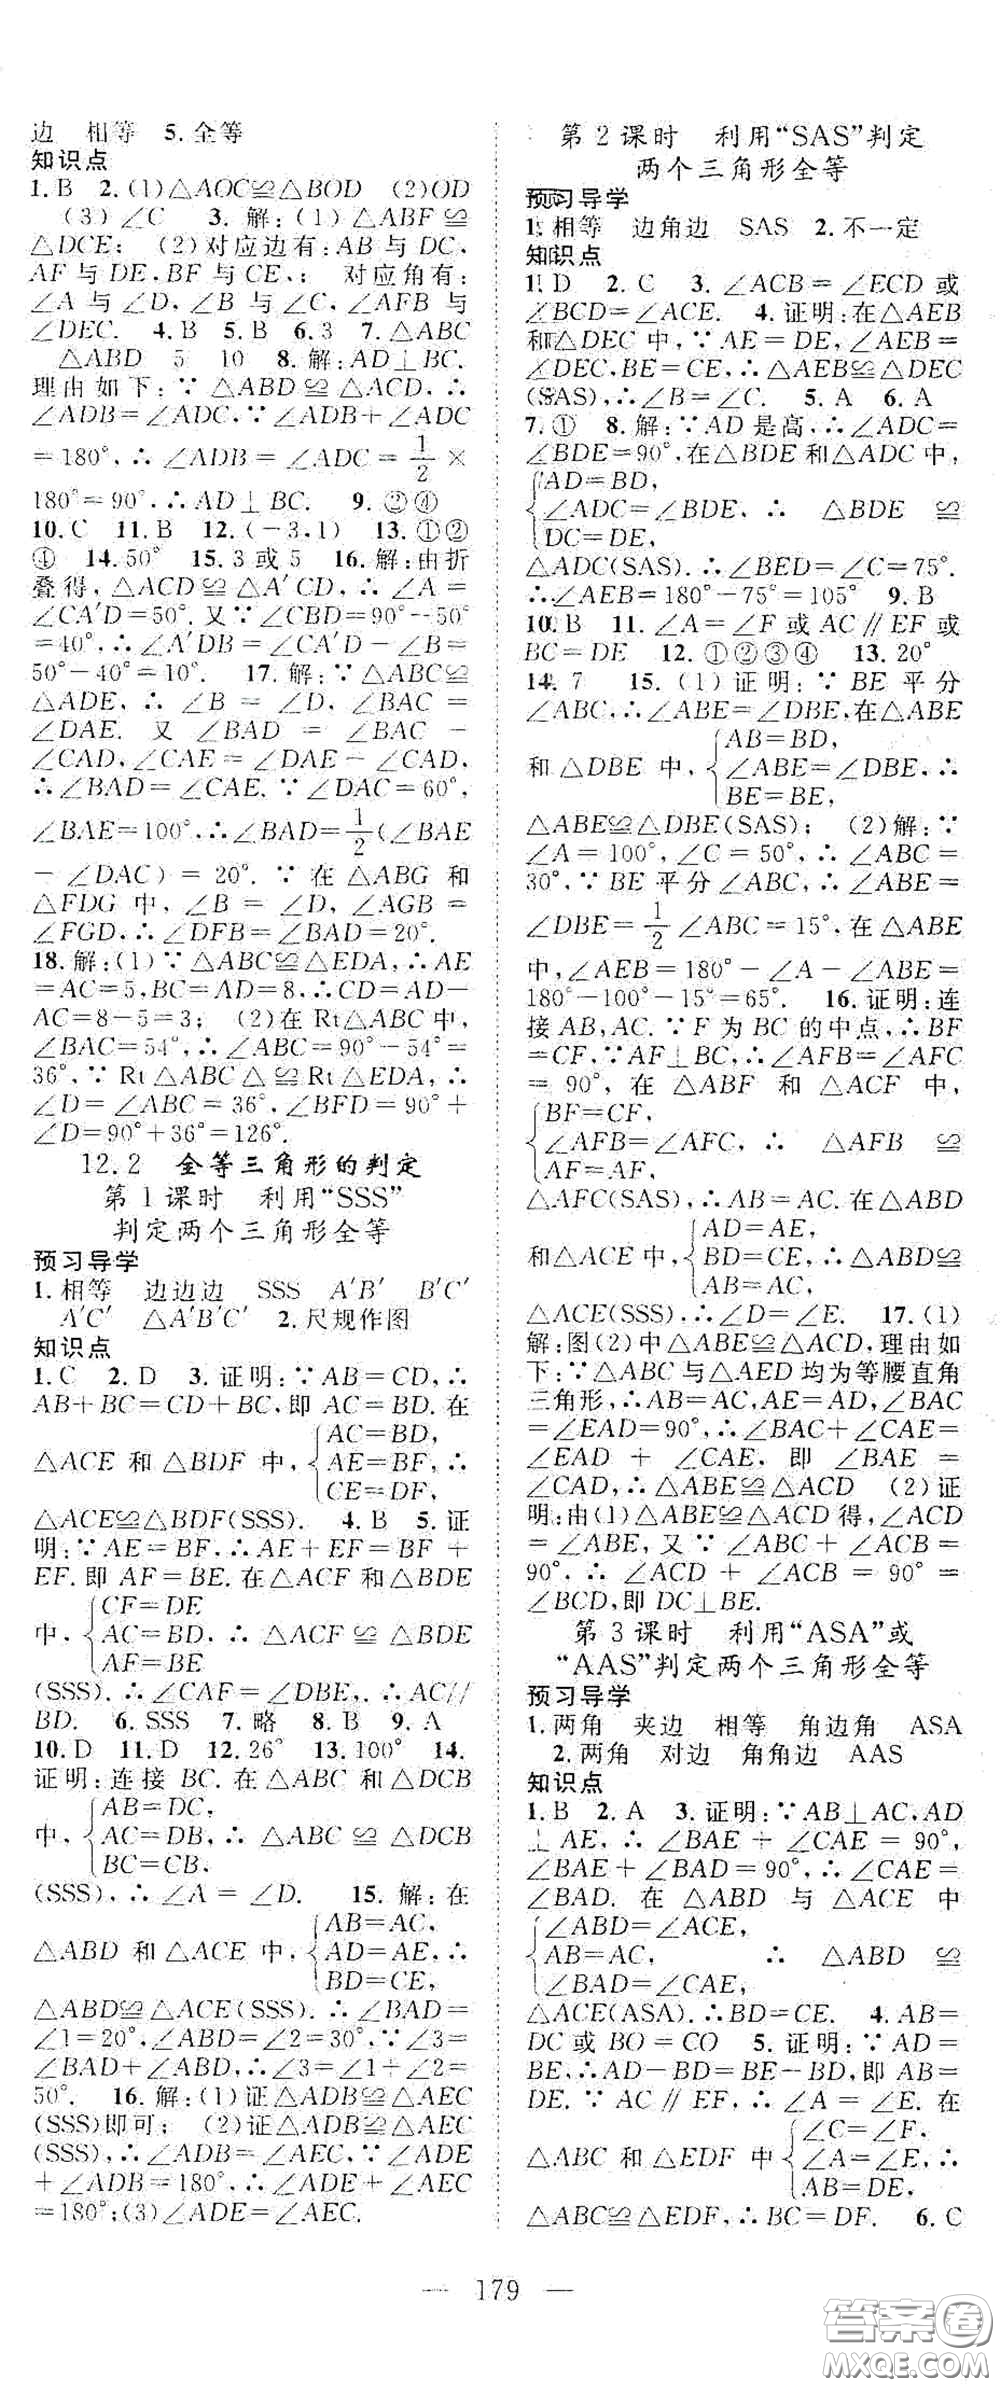 边 相等 5. 全等
知识点
1. B 2. (1)△AOC≌△BOD (2)OD
(3)∠C 3. 解:(1)△ABF≌
△DCE; (2)对应边有:AB 与 DC,
AF 与 DE,BF 与 CE,; 对应角有:
∠A 与∠D,∠B 与∠C,∠AFB 与
∠DEC. 4. B 5. B 6. 3 7. △ABC
△ABD 5 10 8. 解:AD⊥BC.
理由如下:∵△ABD≌△ACD,∴
∠ADB=∠ADC,∵∠ADB+∠ADC
=180°,∴∠ADB=∠ADC=1/2×
180°=90°,∴AD⊥BC. 9. ②④
10. C 11. B 12. (-3,1) 13. ①②
④ 14. 50° 15. 3 或 5 16. 解:由折
叠得,△ACD≌△A′CD,∴∠A=
∠CA′D=50°. 又∵∠CBD=90°-50°
=40°,∴∠A′DB=∠CA′D-∠B=
50°-40°=10°. 17. 解:∵△ABC≌
△ADE,∴∠B=∠D,∠BAC=
∠DAE. 又∠BAD=∠BAC-
∠CAD,∠CAE=∠DAE-∠CAD,
∴∠BAD=∠CAE. ∵∠DAC=60°,
∠BAE=100°,∴∠BAD=1/2(∠BAE
-∠DAC)=20°. ∵在△ABG 和
△FDG 中,∠B=∠D,∠AGB=
∠FGD,∴∠DFB=∠BAD=20°.
18. 解:(1)∵△ABC≌△EDA,∴AE
=AC=5,BC=AD=8,∴CD=AD-
AC=8-5=3; (2)在 Rt△ABC 中,
∠BAC=54°,∴∠ABC=90°-54°=
36°,∵Rt△ABC△≌Rt△EDA,∴
∠D=∠ABC=36°,∠BFD=90°+
∠D=90°+36°=126°.
12.2 全等三角形的判定
第 1 课时 利用“SSS”
判定两个三角形全等
预习导学
1. 相等 边边边 SSS A′B′ B′C′
A′C′ △A′B′C′ 2. 尺规作图
知识点
1. C 2. D 3. 证明:∵AB=CD,∴
AB+BC=CD+BC,即 AC=BD. 在
AC=BD,
△ACE 和△BDF 中, AE=BF, ∴
CE=DF,
△ACE≌△BDF(SSS). 4. B 5. 证
明:∵AE=BF,∴AE+EF=BF+
EF. 即 AF=BE. 在△ACF 和△BDE
CF=DE
中, AC=BD, ∴△ACF≌△BDE
AF=BE
(SSS). ∴∠CAF=∠DBE,. ∴AC//
BD. 6. SSS 7. 略 8. B 9. A
10. D 11. D 12. 26° 13. 100° 14.
证明:连接 BC. 在△ABC 和△DCB
AB=DC,
中, AC=DB, ∴△ABC≌△DCB
BC=CB,
(SSS),∴∠A=∠D. 15. 解:在
AB=AC,
△ABD 和△ACE 中, AD=AE, ∴
BD=CE,
△ABD≌△ACE(SSS). ∴∠BAD=
∠1=20°,∠ABD=∠2=30°,∵∠3=
∠BAD+∠ABD,∴∠3=∠1+∠2=
50°. 16. 解:(1)证△ADB≌△AEC
(SSS)即可; (2)证△ADB≌△AEC
(SSS),∴∠ADB=∠AEC,∵∠ADE
+∠ADB=180°,∴∠ADE+∠AEC
=180°;(3)∠ADE=∠AEC.
第 2 课时 利用“SAS”判定
两个三角形全等
预习导学
1. 相等 边角边 SAS 2. 不一定
知识点
1. D 2. C 3. ∠ACB=∠ECD 或
∠BCD=∠ACE. 4. 证明:在△AEB
和△DEC 中,∵AE=DE,∠AEB=
∠DEC,BE=CE,∴△AEB≌△DEC
(SAS),∴∠B=∠C. 5. A 6. A
7. ① 8. 解:∵AD 是高,∴∠ADC=
∠BDE=90°,在△BDE 和△ADC 中,
AD=BD,
∠ADC=∠BDE, ∴ △BDE ≌
DC=DE,
△ADC(SAS). ∴∠BED=∠C=75°.
∴∠AEB=180°-75°=105° 9. B
10. B 11. ∠A=∠F 或 AC∥EF 或
BC=DE 12. ①②③④ 13. 20°
14. 7 15. (1)证明:∵BE 平分
∠ABC,∴∠ABE=∠DBE,在△ABE
AB=BD,
和△DBE 中, ∠ABE=∠DBE, ∴
BE=BE,
△ABE≌△DBE(SAS); (2)解:∵
∠A=100°,∠C=50°,∴∠ABC=
30°,∵BE 平分∠ABC,∴∠ABE=
∠DBE=1/2∠ABC=15°,在△ABE
中,∠AEB=180°-∠A-∠ABE=
180°-100°-15°=65°. 16. 证明:连
接 AB,AC. ∵F 为 BC 的中点,∴BF
=CF,∵AF⊥BC,∴∠AFB=∠AFC
=90°,在△ABF 和△ACF 中,
BF=CF,
∠AFB=∠AFC, ∴ △AFB ≌
AF=AF,
△AFC(SAS),∴AB=AC. 在△ABD
AD=AE,
和△ACE 中, BD=CE, ∴△ABD≌
AB=AC,
△ACE(SSS),∴∠D=∠E. 17. (1)
解:图(2)中△ABE≌△ACD,理由如
下:∵△ABC 与△AED 均为等腰直角
三角形,∴AB=AC,AE=AD,∠BAC
=∠EAD=90°,∴∠BAC+∠CAE=
∠EAD+∠CAE,即∠BAE=
∠CAD,∴△ABE≌△ACD (2)证
明:由(1)△ABE≌△ACD 得,∠ACD
=∠ABE,又∵∠ABC+∠ACB=
90°,∴∠ACD+∠ACB=90°=
∠BCD,即 DC⊥BE.
第 3 课时 利用“ASA”或
“AAS”判定两个三角形全等
预习导学
1. 两角 夹边 相等 角边角 ASA
2. 两角 对边 角角边 AAS
知识点
1. B 2. A 3. 证明:∵AB⊥AC,AD
⊥AE,∴∠BAE+∠CAE=90°,
∠BAE+∠BAD=90°,∴∠CAE=
∠BAD. 在△ABD 与△ACE 中
∠ABD=∠ACE,
AB=AC, ∴ △ABD ≌
∠BAD=∠CAE,
△ACE(ASA). ∴BD=CE. 4. AB=
DC 或 BO=CO 5. 证明:∵AD=
BE,∴AD-BD=BE-BD,即 AB=
DE. ∵AC∥EF,∴∠A=∠E. 在
∠C=∠F,
△ABC 和△EDF 中 ∠A=∠E, ∴
AB=DE,
△ABC≌△EDF,∴BC=DF. 6. C
— 179 —
答案圈
MXQE.COM